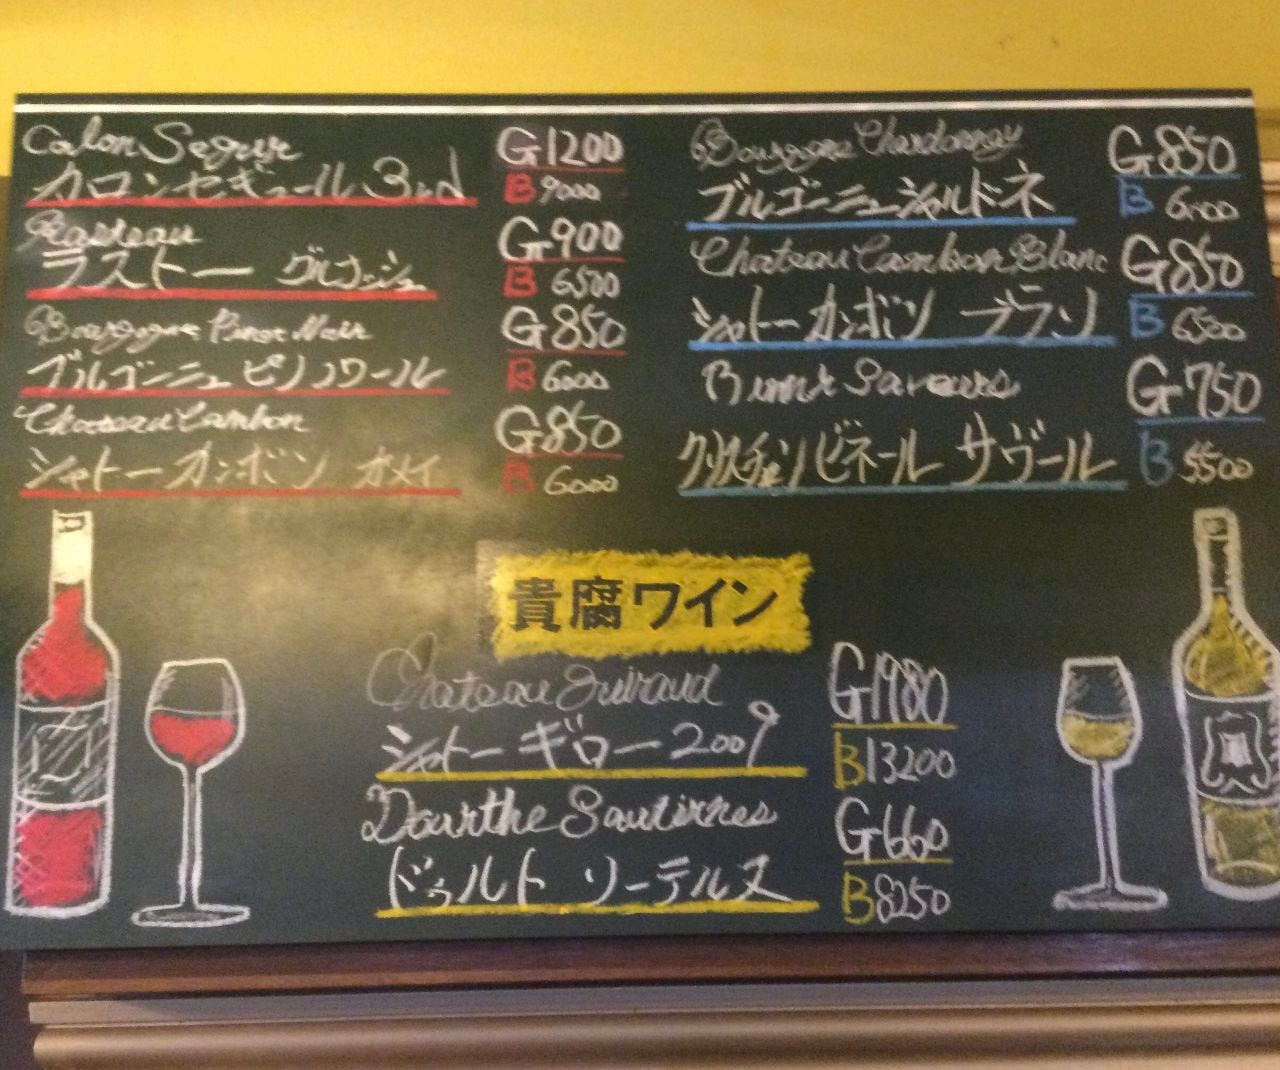 Calon Segur G1200
カロンセギュール 3rd B 9000
Rasteau G900
ラストー グルナッシュ B 6500
Bourgogne Pinot Noir G850
ブルゴーニュ ピノノワール B 6000
Chateau Cambon G850
シャトー カンボン カメイ B 6000
Bourgogne Chardonnay G850
ブルゴーニュ シャルドーネ B 6000
Chateau Cambon Blanc G850
シャトー カンボン ブラン B 6500
Saveurs G750
クリスチャン ビネール サヴール B 5500
貴腐ワイン
Chateau Guiraud G1980
シャトー ギロー 2009 B13200
Dourthe Sauternes G660
ドゥルト ソーテルヌ B8250